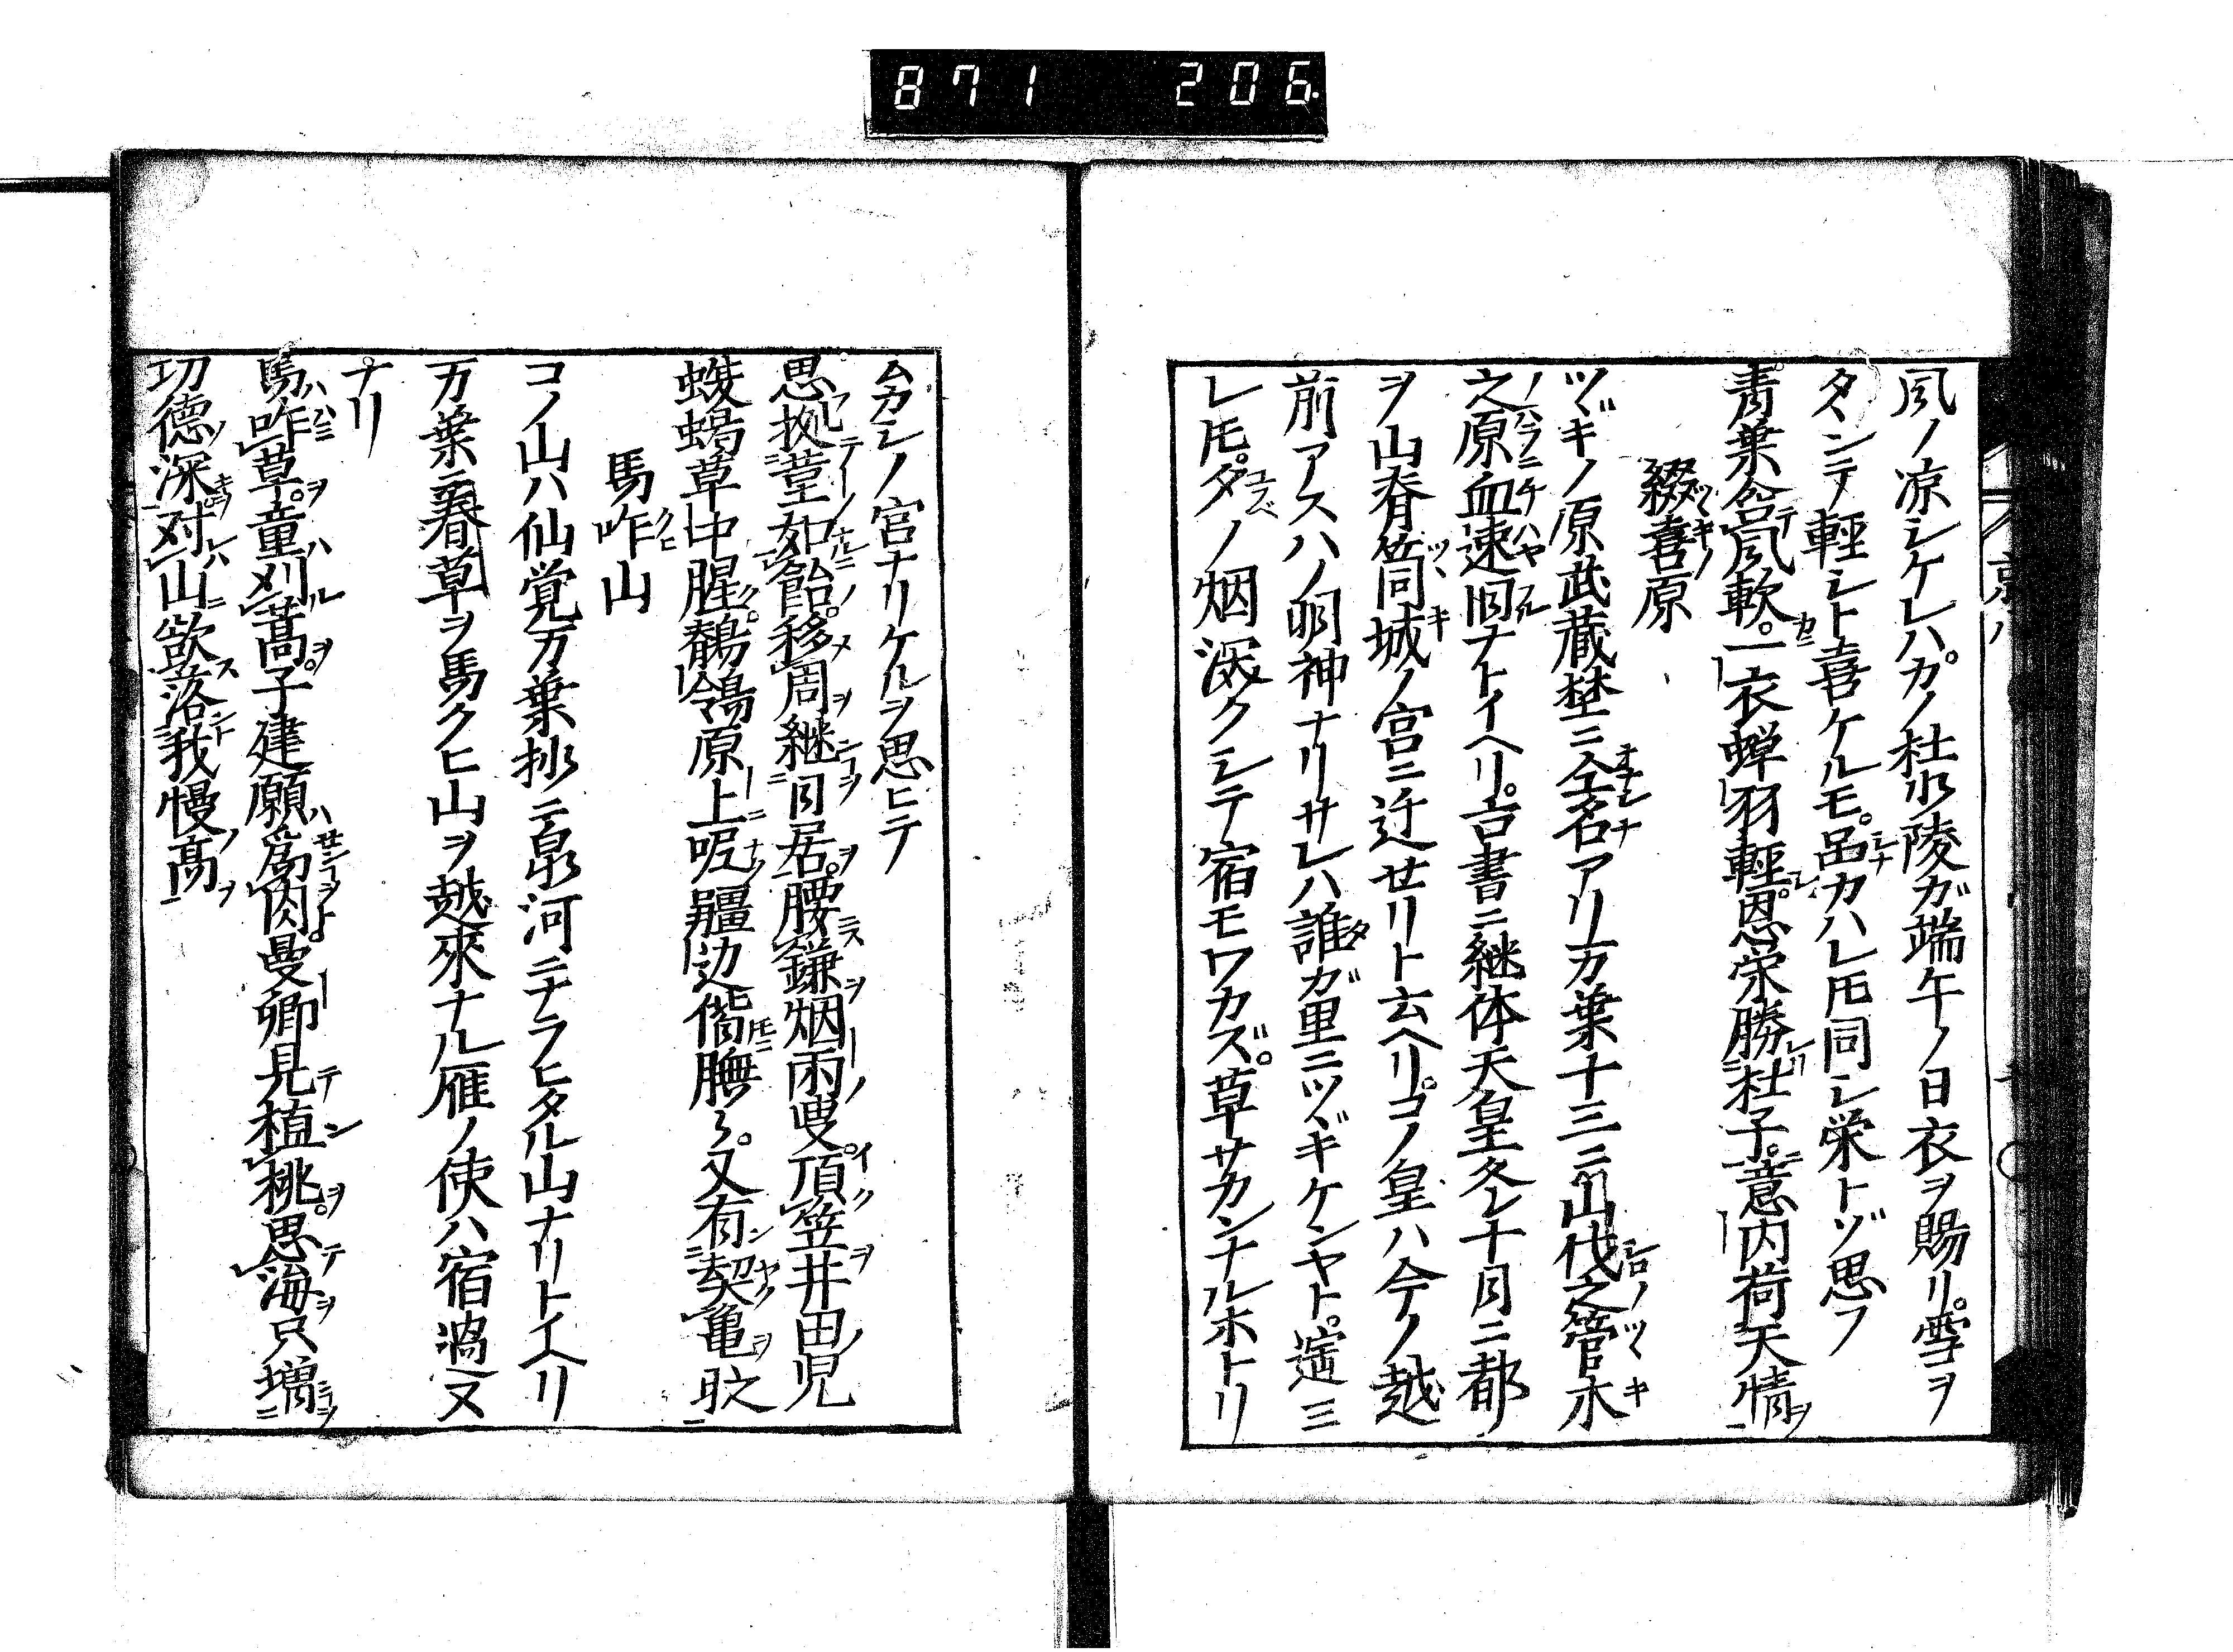 871 206
風ノ凉シケレハカノ杜少陵ガ端午ノ日衣ヲ賜リ雪ヲ
タヽンテ輕シト喜ケルモ品カハレ𪜈同シ栄トゾ思フ
青葉含風軟一衣蝉羽輕恩栄勝杜子意内荷天情
綴喜原
ツヾキノ原武蔵埜ニ仝名アリ万葉十三ニ山代之管木
之原血速旧ナトイヘリ古書ニ継体天皇冬十月ニ都
ヲ山脊筒城ノ宮ニ迁せリト云ヘリコノ皇ハ今ノ越
前アスハノ明神ナリサレハ誰ガ里ニツヾギケンヤト遊三
レ𪜈タノ烟深クシテ宿モワカズ草サカンナルホトリ
ムカシノ宮ナリケルヲ思ヒテ
思拠菫如飴移周継同居腰鎌烟雨叟頂笠井田児
蝬蝪草中腥鶺鴒原上呢疆辺偕膴々又有契亀
馬咋山
コノ山ハ仙覚万葉抄ニ泉河ニナラヒタル山ナリトイヘリ
万葉ニ春草ヲ馬クヒ山ヲ越來ナル雁ノ使ハ宿過又
ナリ
馬咋草童刈蒿子建願為肉曼卿見植桃思海只増
功德深対山欲落我慢高